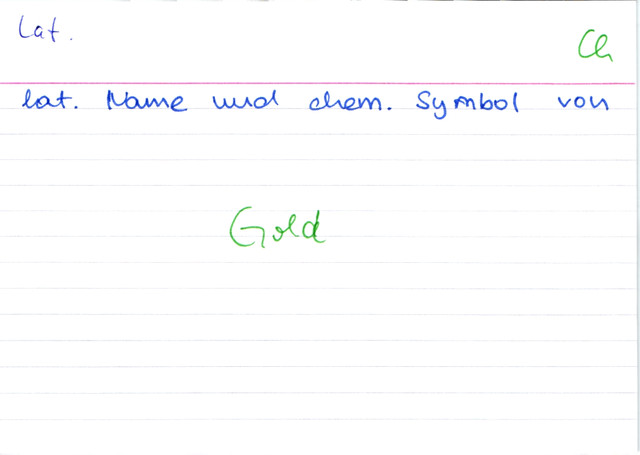 Lat.
Ch
lat. Name und chem. Symbol von
Gold